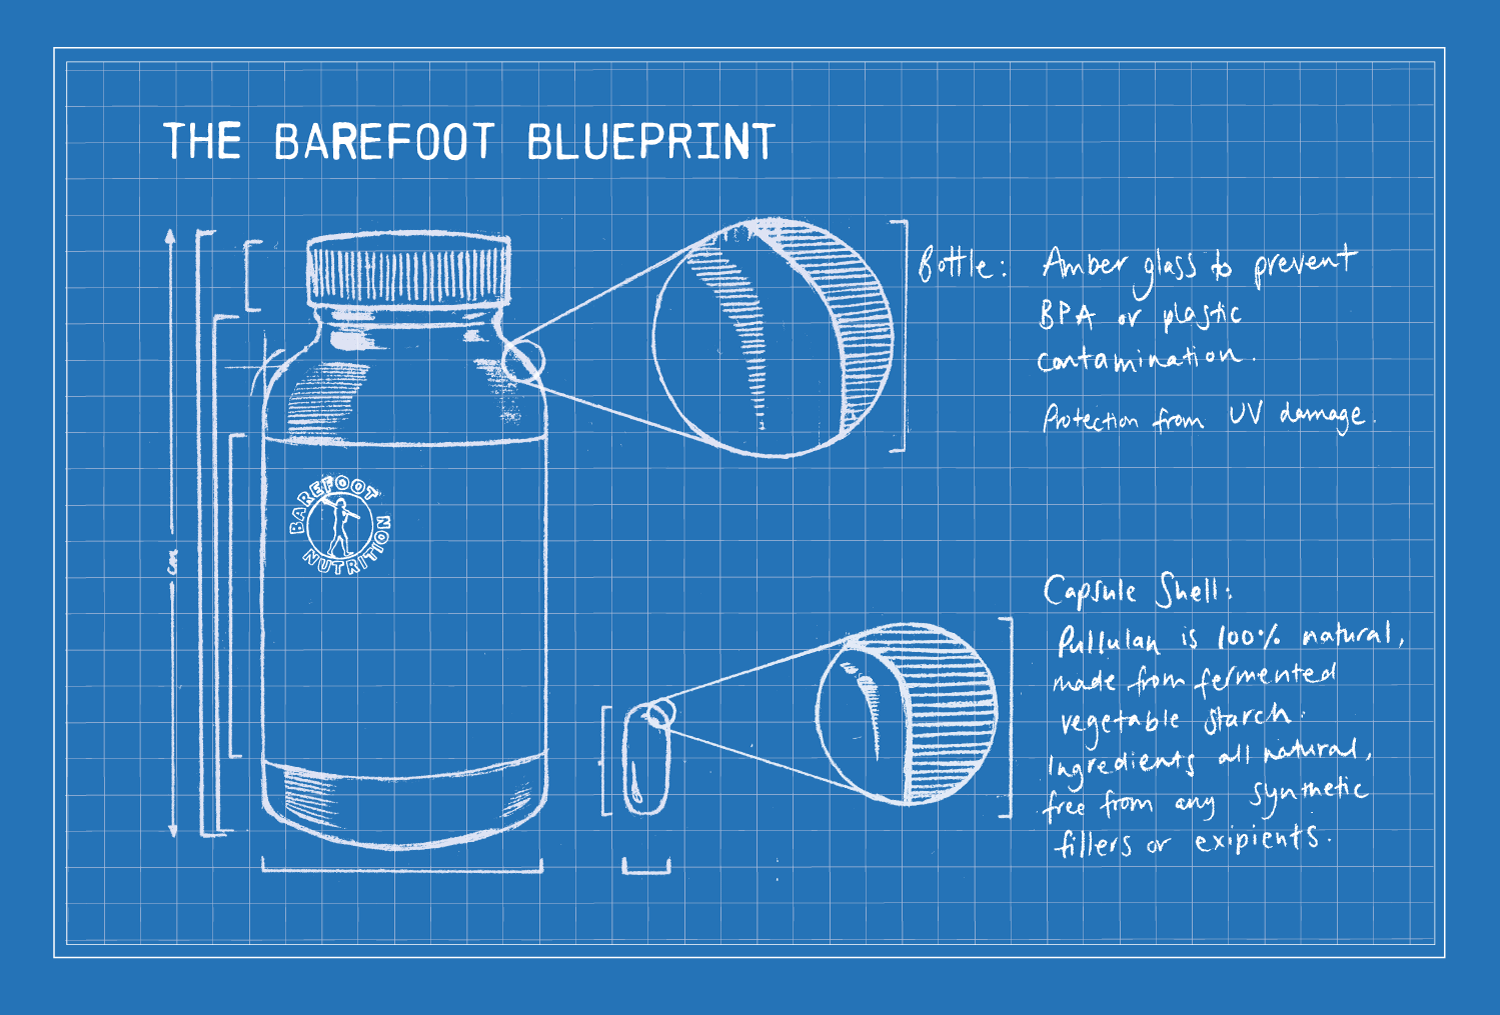 THE BAREFOOT BLUEPRINT
Bottle: Amber glass to prevent
BPA or plastic
contamination.
Protection from UV damage.
cm
BAREFOOT
NUTRITION
Capsule Shell:
Pullulan is 100% natural,
made from fermented
vegetable starch.
Ingredients all natural,
free from any synthetic
fillers or exipients.